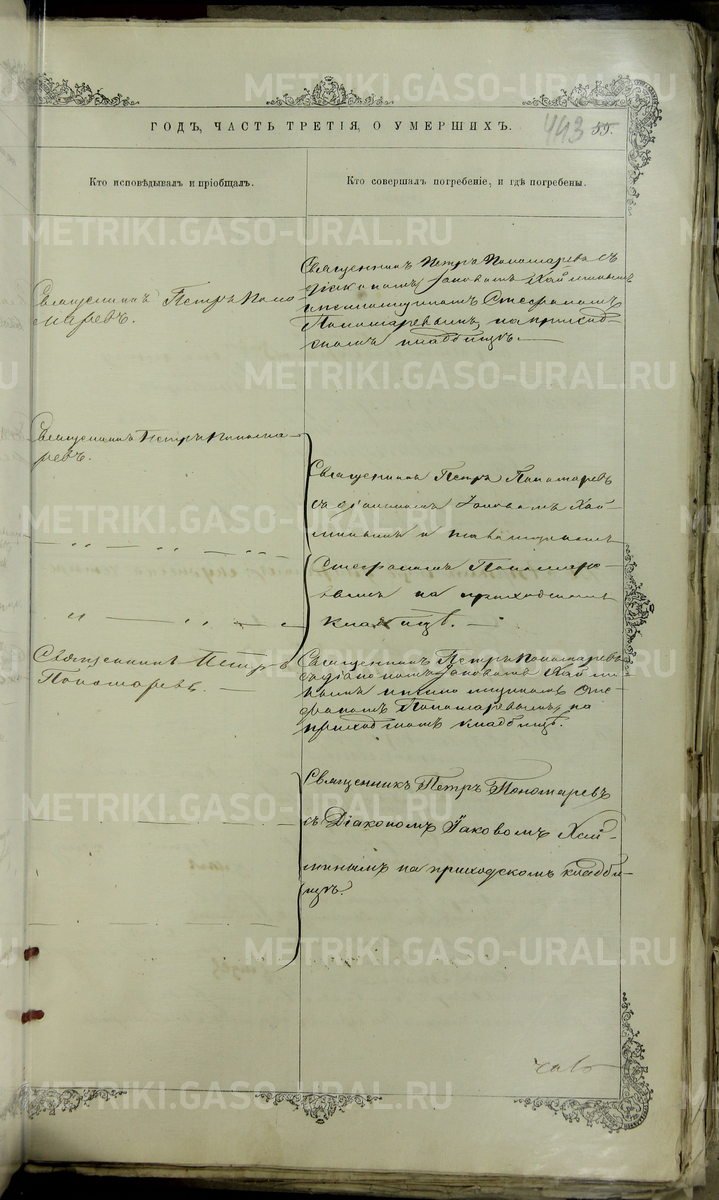 ГОДЪ, ЧАСТЬ ТРЕТІЯ, О УМЕРШИХЪ.
443
59.
Кто исповѣдывалъ и пріобщалъ.
Кто совершалъ погребеніе, и гдѣ погребены.
Священникъ Петръ Поно-
маревъ.
Священникъ Петръ Пономаревъ съ
діакономъ Іаковомъ
Стефаномъ
Пономаревымъ на приход-
скомъ кладбищѣ.
Священникъ Петръ Понома-
ревъ.
Священникъ Петръ Пономаревъ
съ діакономъ Іаковомъ Хай-
минымъ и
Стефаномъ Пономаре-
вымъ на приходскомъ
кладбищѣ.
Священникъ Петръ
Пономаревъ.
Священникъ Петръ Пономаревъ
съ діакономъ Іаковомъ Хайми-
нымъ Сте-
фаномъ Пономаревымъ, на
приходскомъ кладбищѣ.
Священникъ Петръ Пономаревъ
съ Діакономъ Іаковомъ Хай-
минымъ на приходскомъ кладби-
щѣ.
METRIKI.GASO-URAL.RU